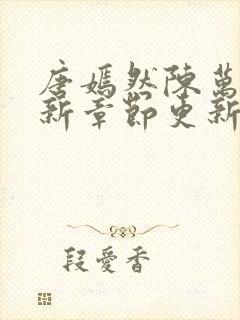 唐嫣然陳萬
新章節更新
段愛香